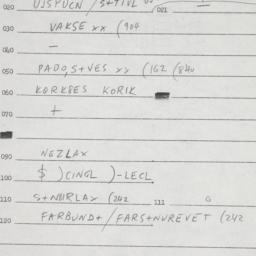 020 UJSPUCN / S+TIVL 021
030 VAKSE xx (904
040 —
050 PADO,S+VES xx (162 (840
060 KORKBES KORIK
070 +
090 NEZLAX
100 $ ) CINGL )-LECL
110 S+NURLAX (242 111 G
120 FARBUND+/FARS+NUREVET (242